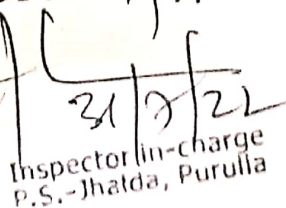 31/7/22
Inspector in-charge
P.S.-Jhalda, Purulia